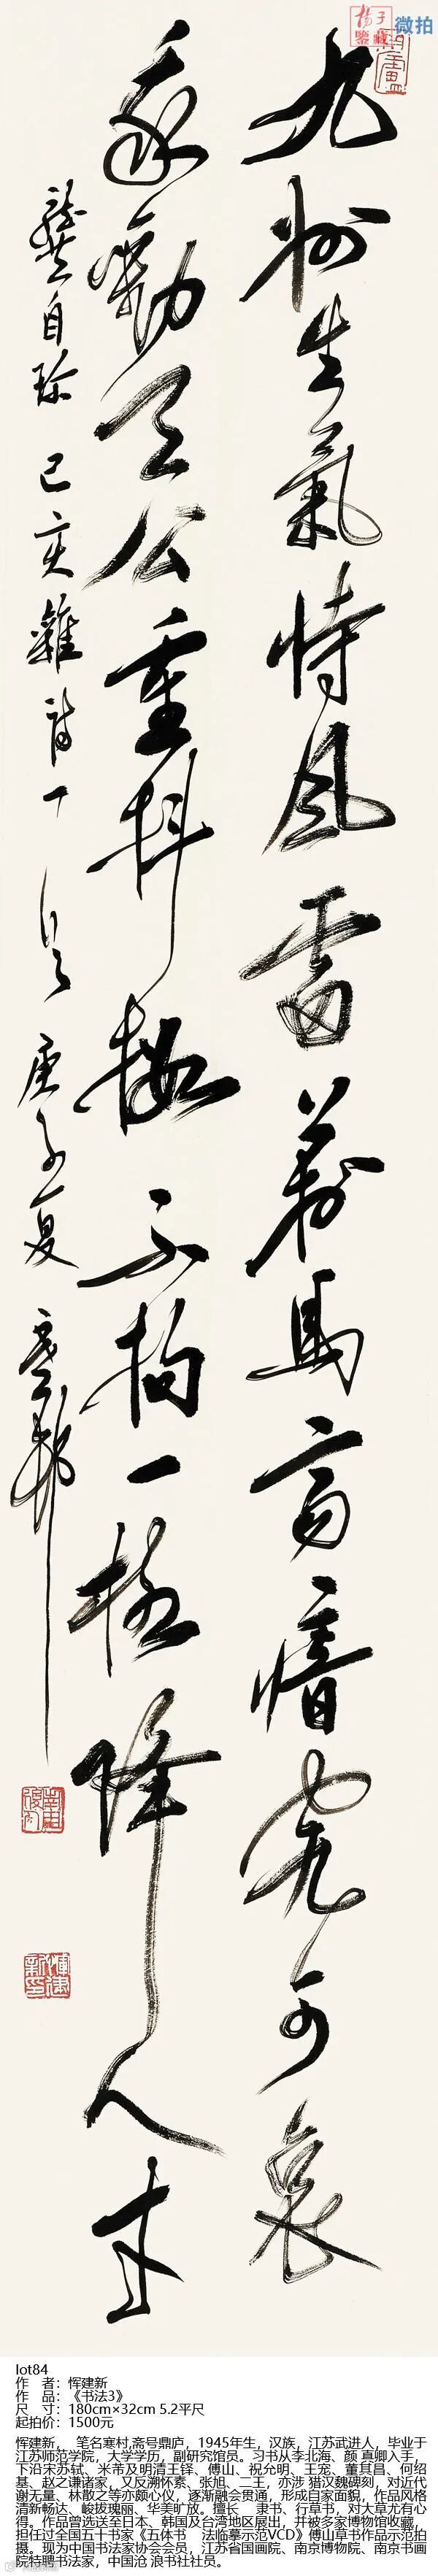 九州生氣恃風雷萬馬齊瘖究可哀
我勸天公重抖擻不拘一格降人才
龔自珍己亥雜詩一首庚子夏寒邨
楊子
鑒藏
微拍
lot84
作　者：恽建新
作　品：《书法3》
尺　寸：180cm×32cm 5.2平尺
起拍价：1500元
恽建新， 笔名寒村,斋号鼎庐，1945年生，汉族，江苏武进人，毕业于
江苏师范学院，大学学历，副研究馆员。习书从李北海、颜 真卿入手，
下沿宋苏轼、米芾及明清王铎、傅山、祝允明、王宠、董其昌、何绍
基、赵之谦诸家，又反溯怀素、张旭、二王，亦涉 猎汉魏碑刻，对近代
谢无量、林散之等亦颇心仪，逐渐融会贯通，形成自家面貌，作品风格
清新畅达、峻拔瑰丽、华美旷放。擅长　隶书、行草书，对大草尤有心
得。作品曾选送至日本、韩国及台湾地区展出，并被多家博物馆收藏，
担任过全国五十书家《五体书　法临摹示范VCD》傅山草书作品示范拍
摄。现为中国书法家协会会员，江苏省国画院、南京博物院、南京书画
院特聘书法家，中国沧 浪书社社员。